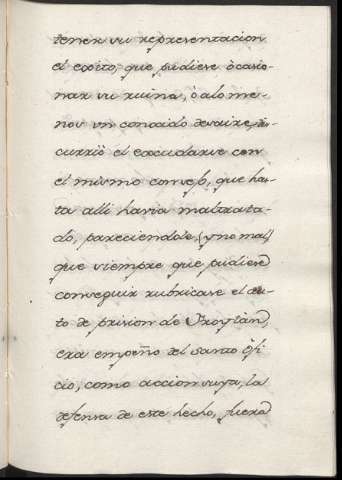 tener su representacion
el exito, que pudiese òcasio-
nar su ruina, ò alo me-
nos un conocido desaire, dis-
currió el escudarse con
el mismo consejo, que has-
ta alli havia maltrata-
do, pareciendole, (y no mal)
que siempre que pudiese
conseguir rubricase el au-
to de prision de Froylàn,
era empeño del Santo Ofi-
cio, como accion suya, la
defensa de este hecho, fuera